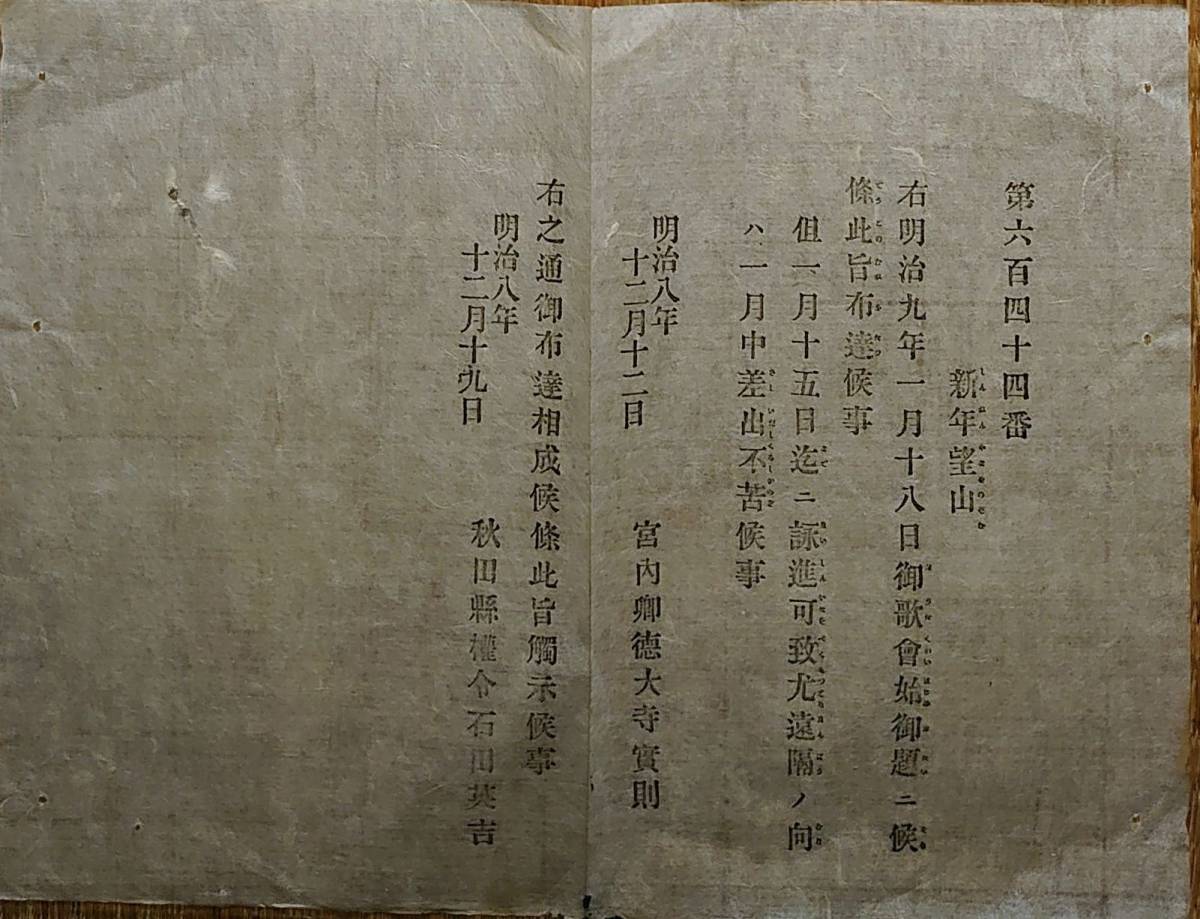 第六百四十四番
新年望山
右明治九年一月十八日御歌會始御題ニ候
條此旨布達候事
但一月十五日迄ニ詠進可致尤遠隔ノ向
ハ一月中差出不苦候事
明治八年
十二月十二日
宮內卿德大寺實則
右之通御布達相成候條此旨觸示候事
明治八年
十二月十九日
秋田縣權令石田英吉